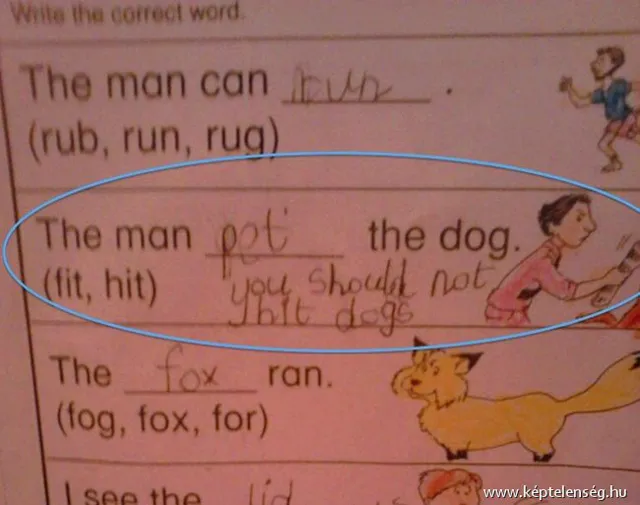 Write the correct word.
The man can run .
(rub, run, rug)
The man pet the dog.
(fit, hit) you should not
hit dogs
The fox ran.
(fog, fox, for)
I see the lid
www.képtelenség.hu